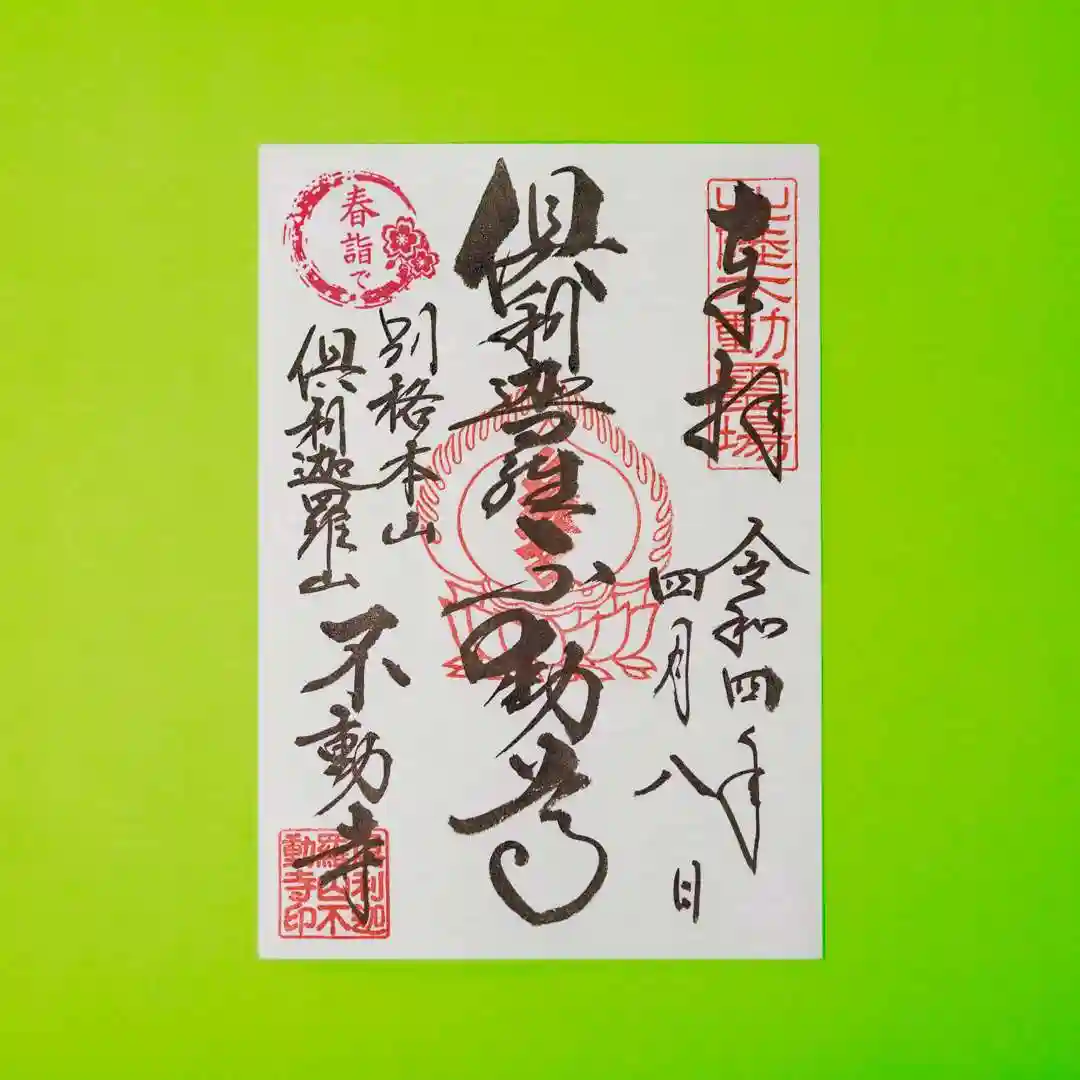 奉拝
北陸不動霊場
令和四年
四月八日
倶利迦羅不動尊
春詣で
別格本山
倶利迦羅山
不動寺
倶利迦
羅山不
動寺印